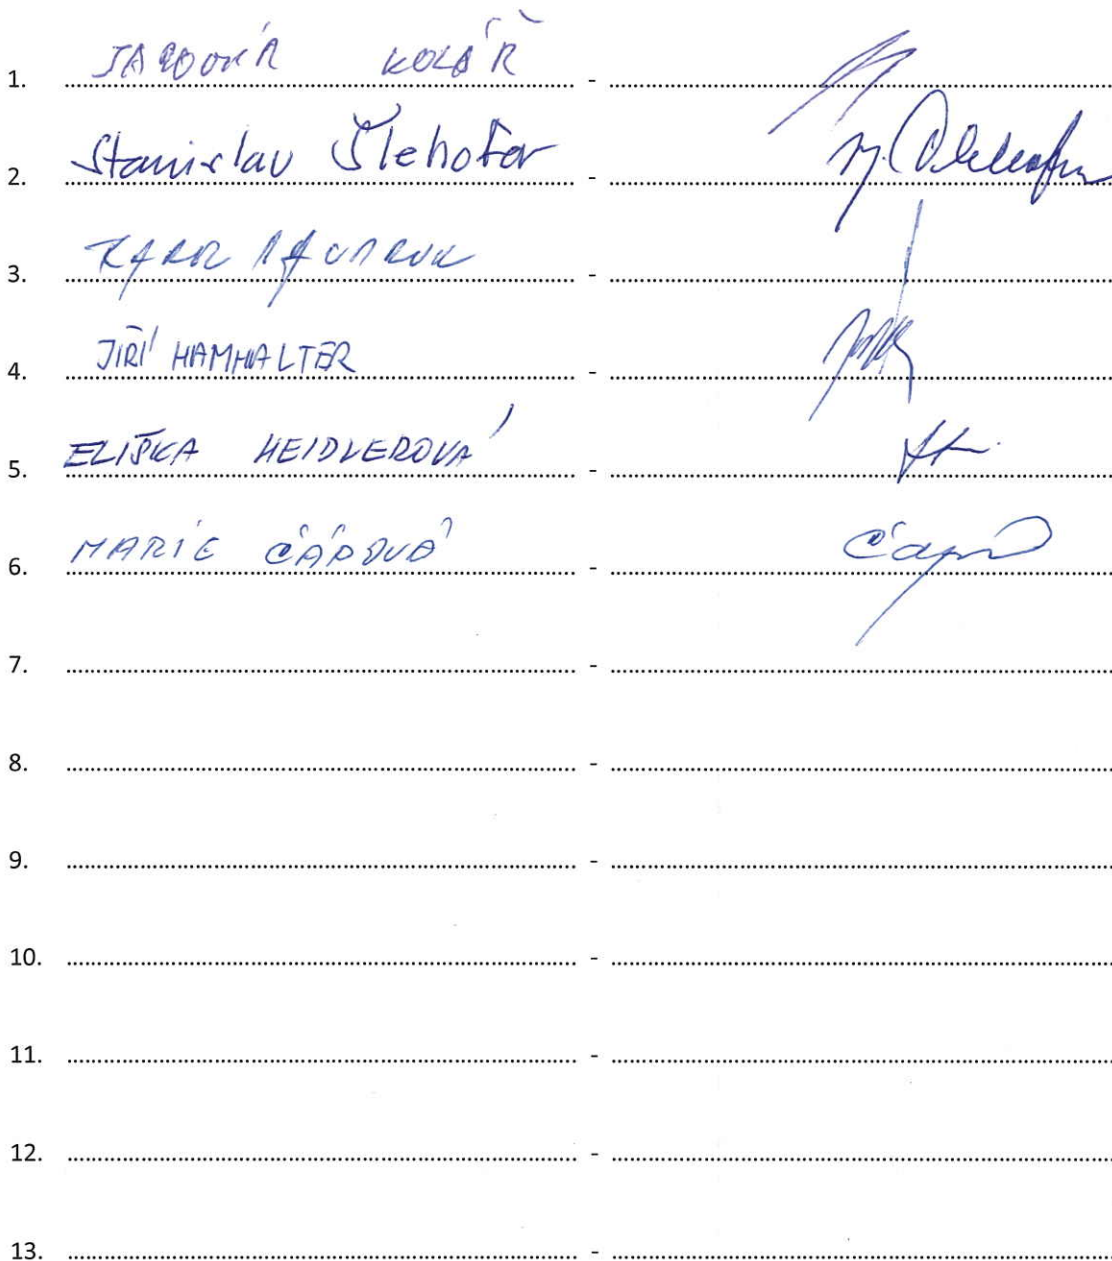 1. JAROMÍR KOLÁŘ -
2. Stanislav Šlehofer -
3. KAREL -
4. JIŘÍ HAMHALTER -
5. ELIŠKA HEIDLEROVÁ -
6. MARIE ČÁPOVÁ - Čápová
7. -
8. -
9. -
10. -
11. -
12. -
13. -